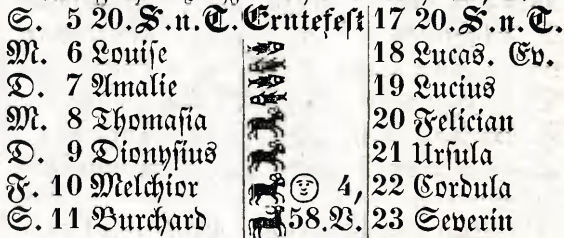 S. 5 20.S.n.T. Erntefest 17 20.S.n.T.
M. 6 Louise 18 Lucas. Ev.
D. 7 Amalie 19 Lucius
M. 8 Thomasia 20 Felician
D. 9 Dionysius 21 Ursula
F. 10 Melchior 4, 22 Cordula
S. 11 Burchard 58.V. 23 Severin